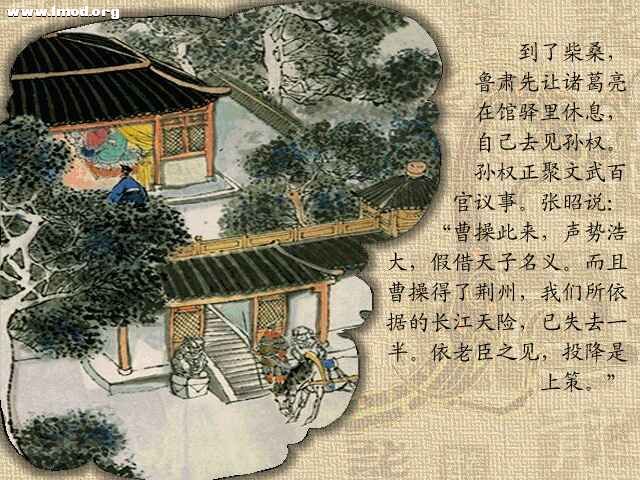 www.lmod.org
到了柴桑，
鲁肃先让诸葛亮
在馆驿里休息，
自己去见孙权。
孙权正聚文武百
官议事。张昭说：
“曹操此来，声势浩
大，假借天子名义。而且
曹操得了荆州，我们所依
据的长江天险，已失去一
半。依老臣之见，投降是
上策。”